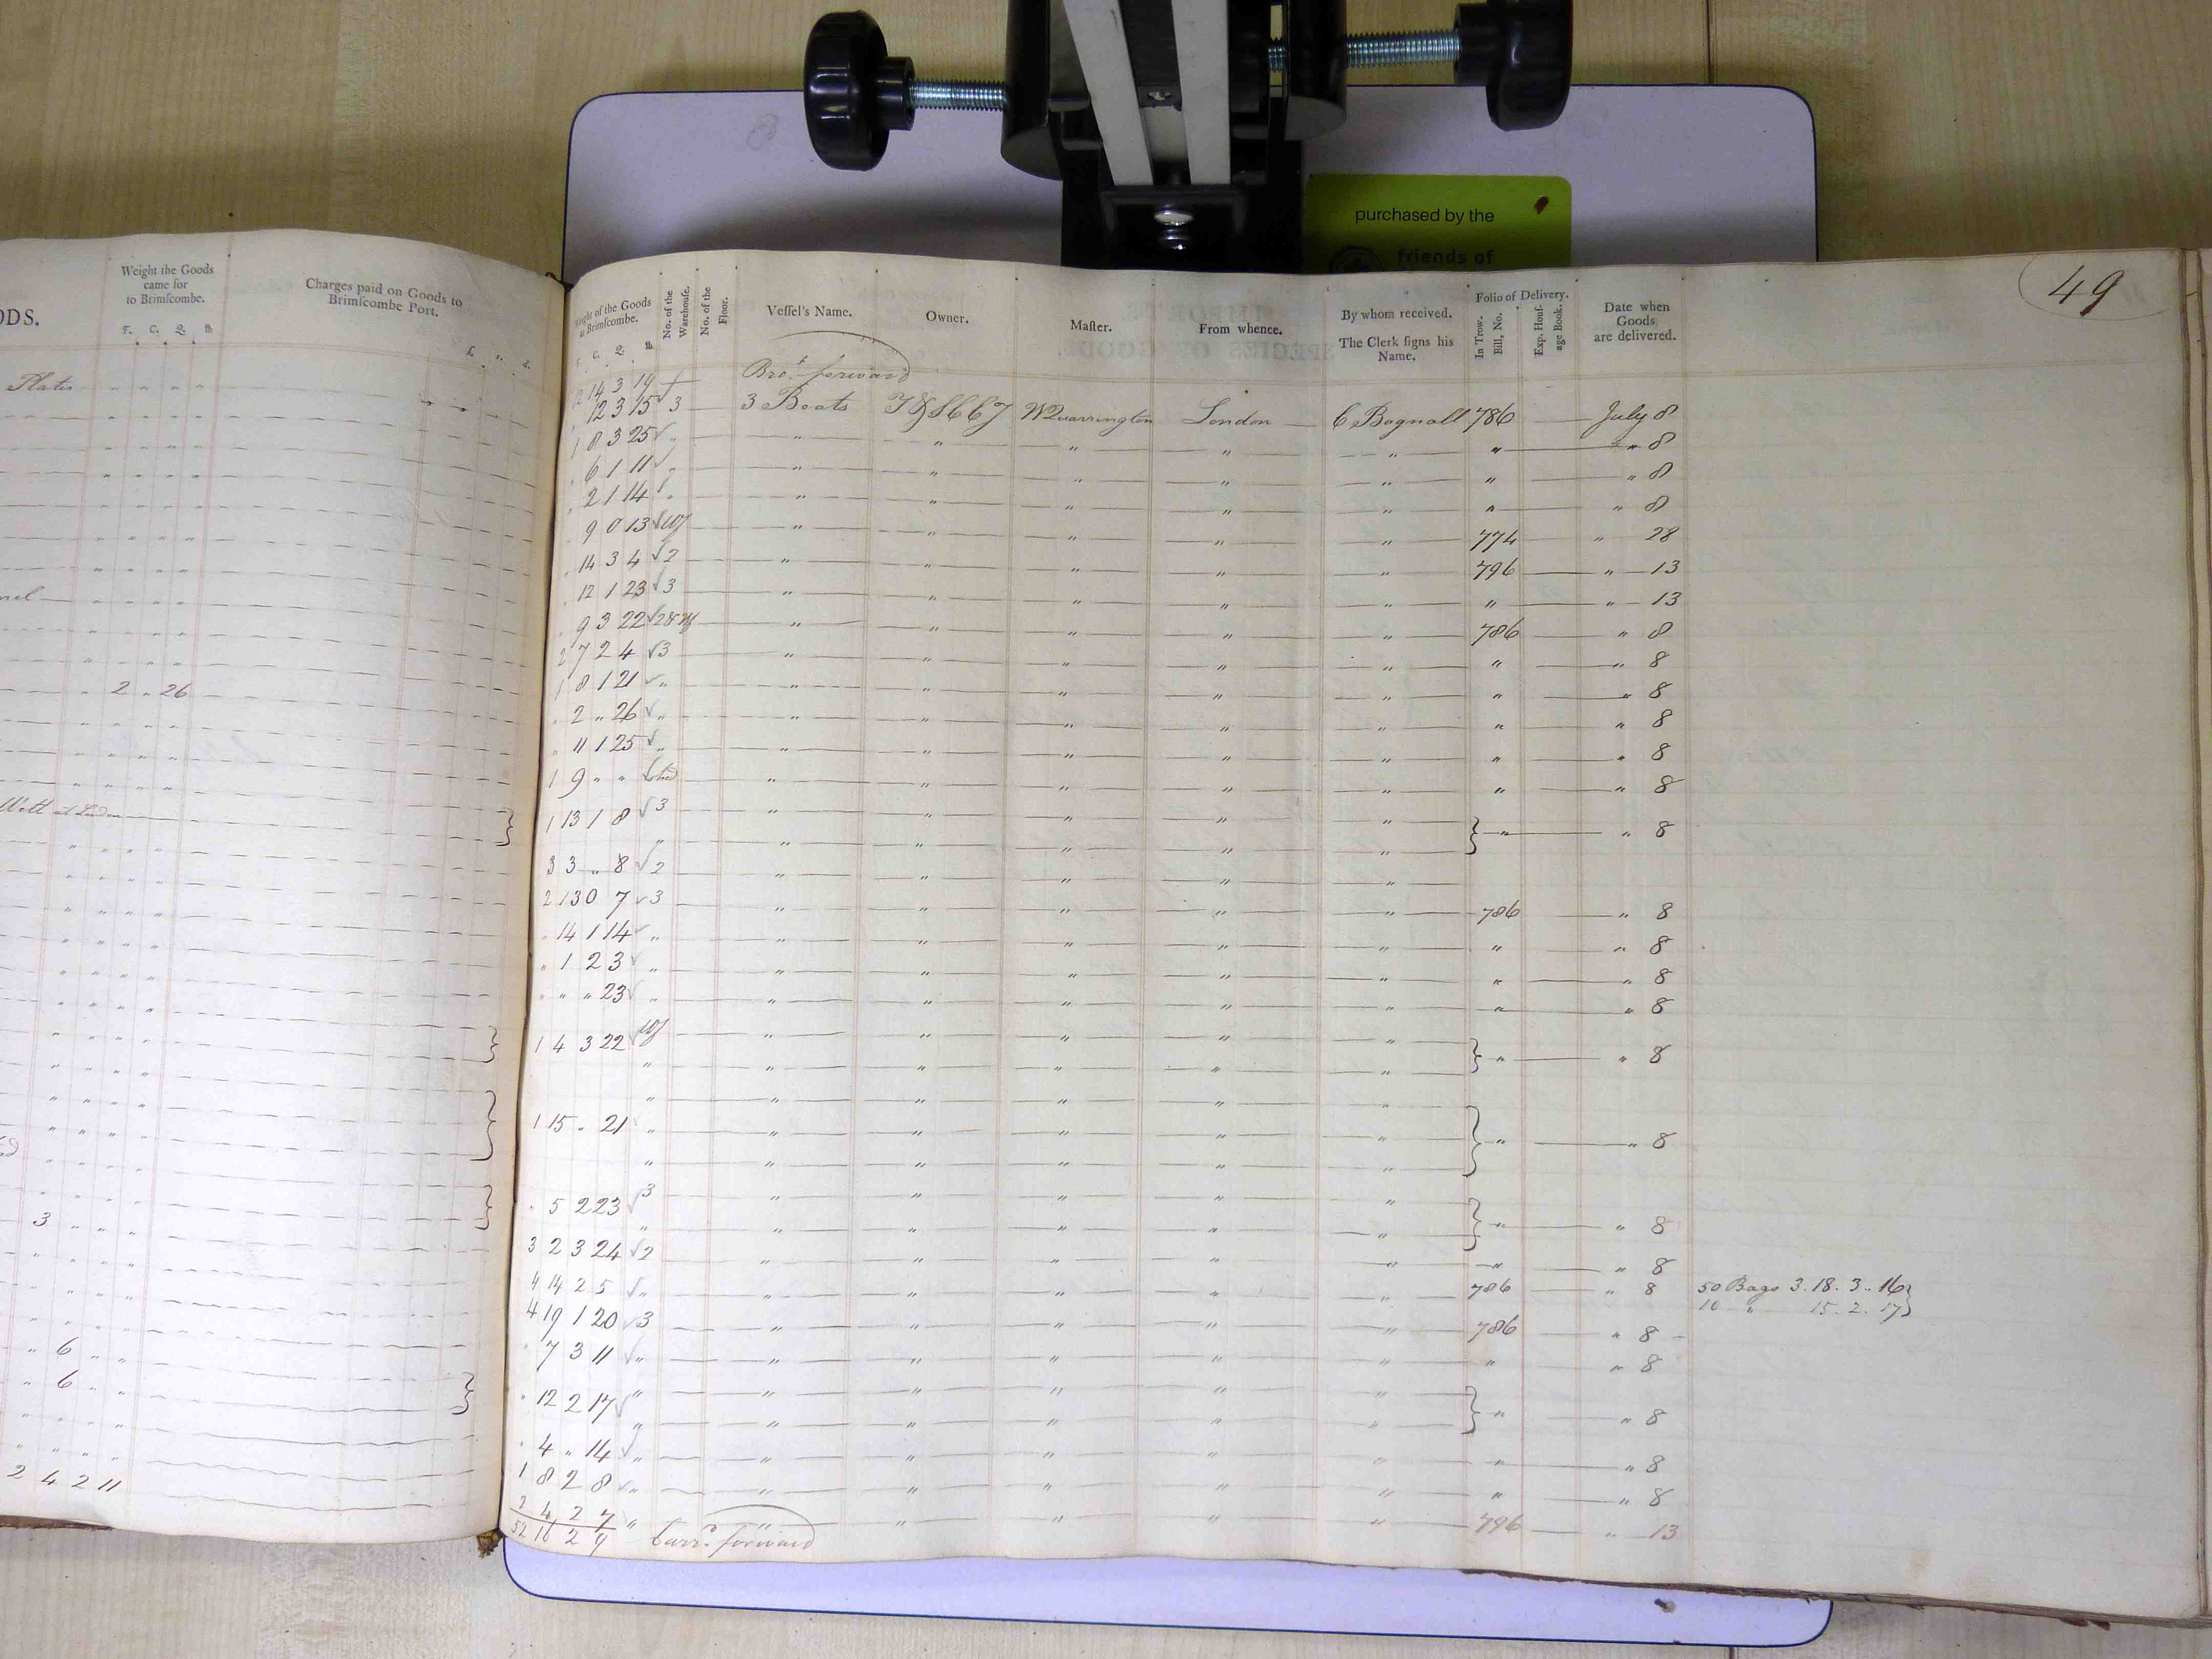 purchased by the
friends of
49
ODS.
Weight the Goods
came for
to Brimſcombe.
T. C. Q. lb
Charges paid on Goods to
Brimſcombe Port.
£. s. d.
Plates
2 „ 26
Wett at London
3 „ „
„ 6 „ „
„ 6 „ „
2 4 2 11
Weight of the Goods
at Brimſcombe.
T. C. Q. lb
No. of the
Warehouſe.
No. of the
Floor.
Veſſel's Name.
Owner.
Maſter.
From whence.
By whom received.
The Clerk ſigns his
Name.
Folio of Delivery.
In Trow.
Bill, No.
Exp. Houſ-
age Book.
Date when
Goods
are delivered.
14 3 19 Bro.t forward
12 3 15 3 3 Boats W Quarrington London C Bagnall 786 July 8
1 8 3 25 „ „ „ „ „ „ „ „ 8
„ 6 1 11 „ „ „ „ „ „ „ „ 8
„ 2 1 14 „ „ „ „ „ „ „ „ 8
9 0 13 „ „ „ „ „ 774 „ 28
„ 14 3 4 2 „ „ „ „ „ 796 „ 13
„ 12 1 23 3 „ „ „ „ „ „ „ 13
„ 9 3 22 „ „ „ „ „ 786 „ 8
2 7 2 4 3 „ „ „ „ „ „ „ 8
1 8 1 21 „ „ „ „ „ „ „ „ 8
„ 2 „ 26 „ „ „ „ „ „ „ „ 8
„ 11 1 25 „ „ „ „ „ „ „ „ 8
1 9 „ „ „ „ „ „ „ „ „ 8
1 13 1 8 3 „ „ „ „ „ „ „ 8
„ „ „ „ „ „
3 3 „ 8 2 „ „ „ „ „
2 13 0 7 3 „ „ „ „ „ 786 „ 8
„ 14 1 14 „ „ „ „ „ „ „ „ 8
„ 1 2 3 „ „ „ „ „ „ „ „ 8
„ „ „ 23 „ „ „ „ „ „ „ „ 8
1 4 3 22 „ „ „ „ „ „ „ 8
„ „ „ „ „ „
„ „ „ „ „ „
1 15 „ 21 „ „ „ „ „ „ „ „ 8
„ „ „ „ „ „
„ 5 2 23 3 „ „ „ „ „ „ „ 8
„ „ „ „ „ „
3 2 3 24 2 „ „ „ „ „ „ 8
4 14 2 5 „ „ „ „ „ „ 786 „ 8 50 Bags 3. 18. 3. 16
10 „ 15. 2. 17
4 19 1 20 3 „ „ „ „ „ 786 „ 8
„ 7 3 11 „ „ „ „ „ „ „ „ 8
„ 12 2 17 „ „ „ „ „ „ „ „ 8
„ „ „ „ „ „
„ 4 „ 14 „ „ „ „ „ „ „ „ 8
1 8 2 8 „ „ „ „ „ „ „ „ 8
2 4 2 7 „ „ „ „ „ „ 796 „ 13
52 16 2 9 Carr.d forward